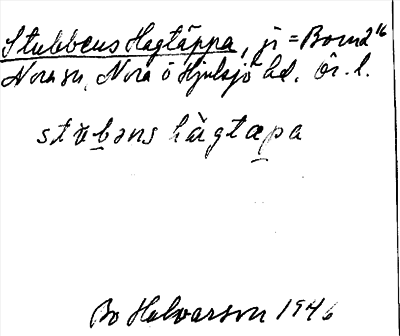 Stubbens Hagtäppa, ji = Born 2¹⁶
Nora sn, Nora o Hjulsjö hd. Ör. l.
stùbəns hàgtæpa
Bo Halvarson 1946